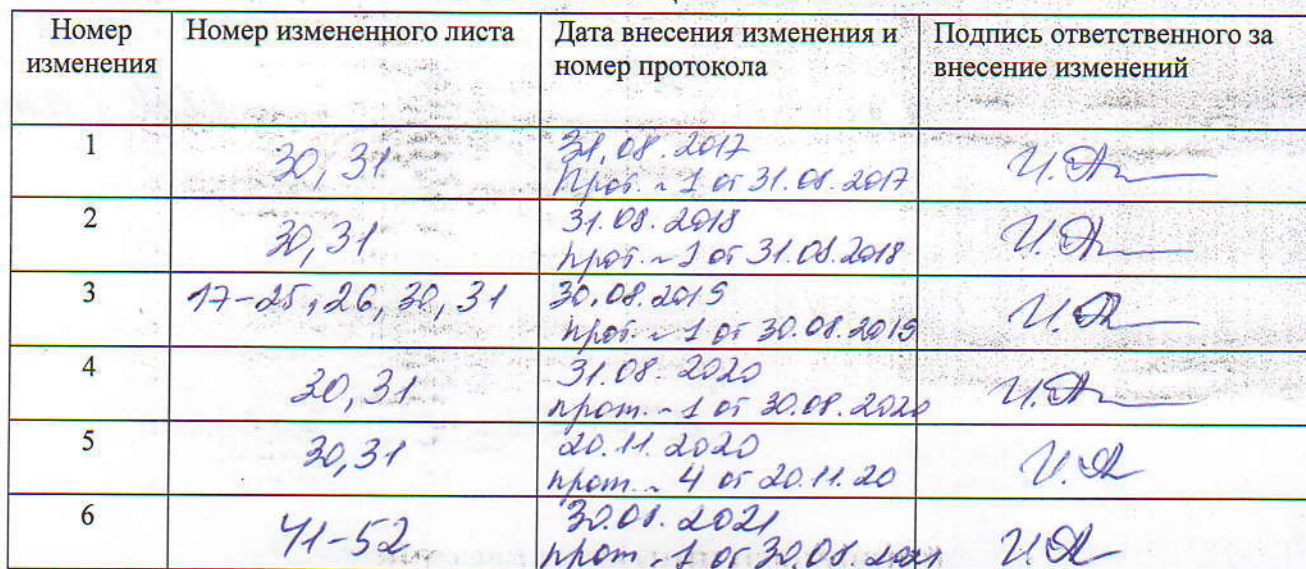 Номер изменения
Номер измененного листа
Дата внесения изменения и номер протокола
Подпись ответственного за внесение изменений
1
30, 31
31.08.2017
Прот. ~ 1 от 31.08.2017
2
30, 31
31.08.2018
прот. ~ 1 от 31.08.2018
3
17-25, 26, 30, 31
30.08.2019
прот. ~ 1 от 30.08.2019
4
30, 31
31.08.2020
прот. ~ 1 от 30.08.2020
5
30, 31
20.11.2020
прот. ~ 4 от 20.11.20
6
41-52
30.08.2021
прот ~ 1 от 30.08.2021